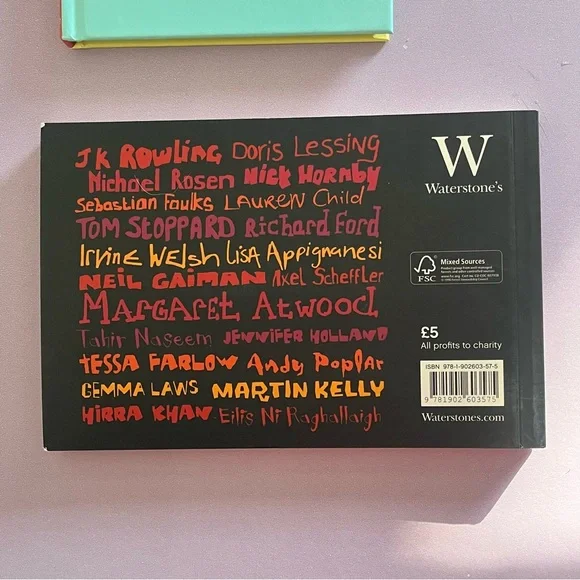 JK ROWLING DORIS LESSING
Michael Rosen NICK HORNBY
Sebastian Faulks LAUREN Child
TOM STOPPARD Richard Ford
Irvine WELSH LISA Appignanesi
NEIL GAIMAN Axel Scheffler
MARGARET ATWOOD
Tahir Naseem JENNIFER HOLLAND
TESSA FARLOW Andy Poplar
GEMMA LAWS MARTIN KELLY
HIRRA KHAN Eilis Ni Raghallaigh
W
Waterstone's
FSC
Mixed Sources
Product group from well-managed
forests and other controlled sources
£5
All profits to charity
ISBN 978-1-902603-57-5
9 781902 603575
Waterstones.com